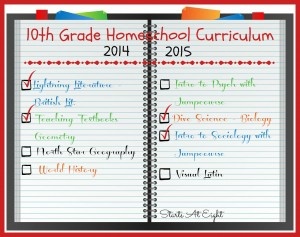 10th Grade Homeschool Curriculum
2014
2015
Lightning Literature
British Lit
Teaching Textbooks
Geometry
North Star Geography
World History
Intro to Psych with
Jumpcourse
Dive Science - Biology
Intro to Sociology with
Jumpcourse
Visual Latin
Starts At Eight